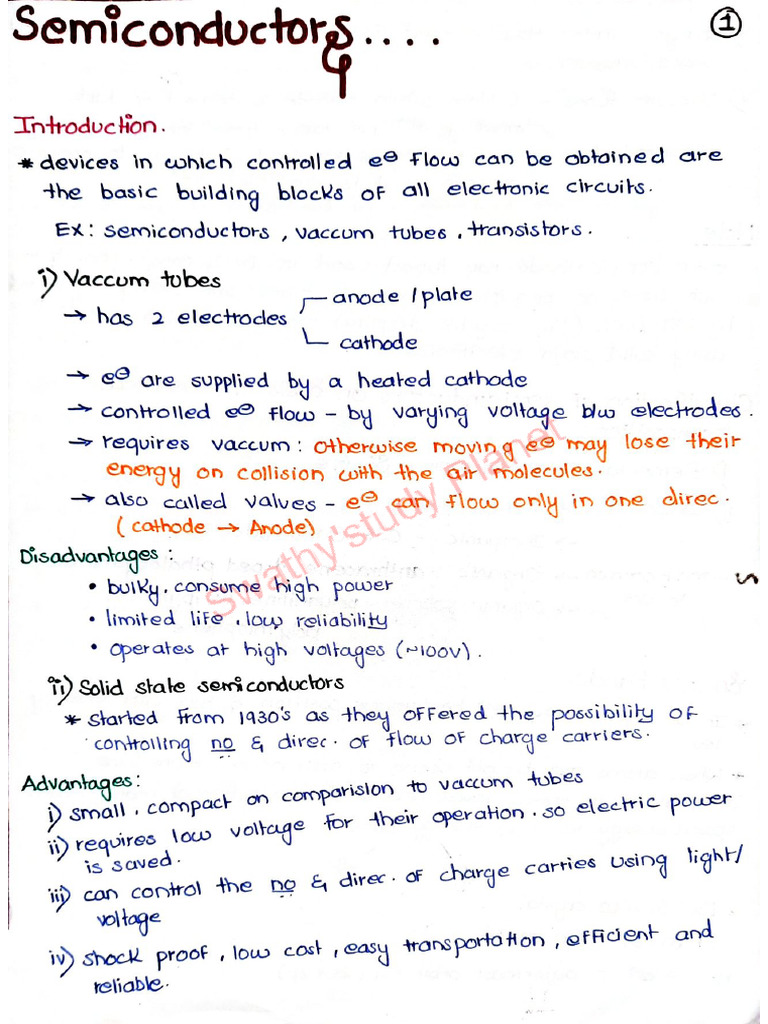 Semiconductors....
1
Introduction.
* devices in which controlled e⊖ flow can be obtained are
the basic building blocks of all electronic circuits.
Ex: semiconductors, vaccum tubes, transistors.
i) Vaccum tubes
→ has 2 electrodes
anode/plate
cathode
→ e⊖ are supplied by a heated cathode
→ controlled e⊖ flow - by varying voltage b/w electrodes.
→ requires vaccum: otherwise moving e⊖ may lose their
energy on collision with the air molecules.
→ also called valves - e⊖ can flow only in one direc.
(cathode → Anode)
Swathy'study Planet
Disadvantages:
• bulky, consume high power
• limited life, low reliability
• operates at high voltages (~100V).
ii) Solid state semiconductors
* started from 1930's as they offered the possibility of
controlling no & direc. of flow of charge carriers.
Advantages:
i) small, compact on comparision to vaccum tubes
ii) requires low voltage for their operation. so electric power
is saved.
iii) can control the no & direc. of charge carries using light/
voltage
iv) shock proof, low cost, easy transportation, efficient and
reliable.